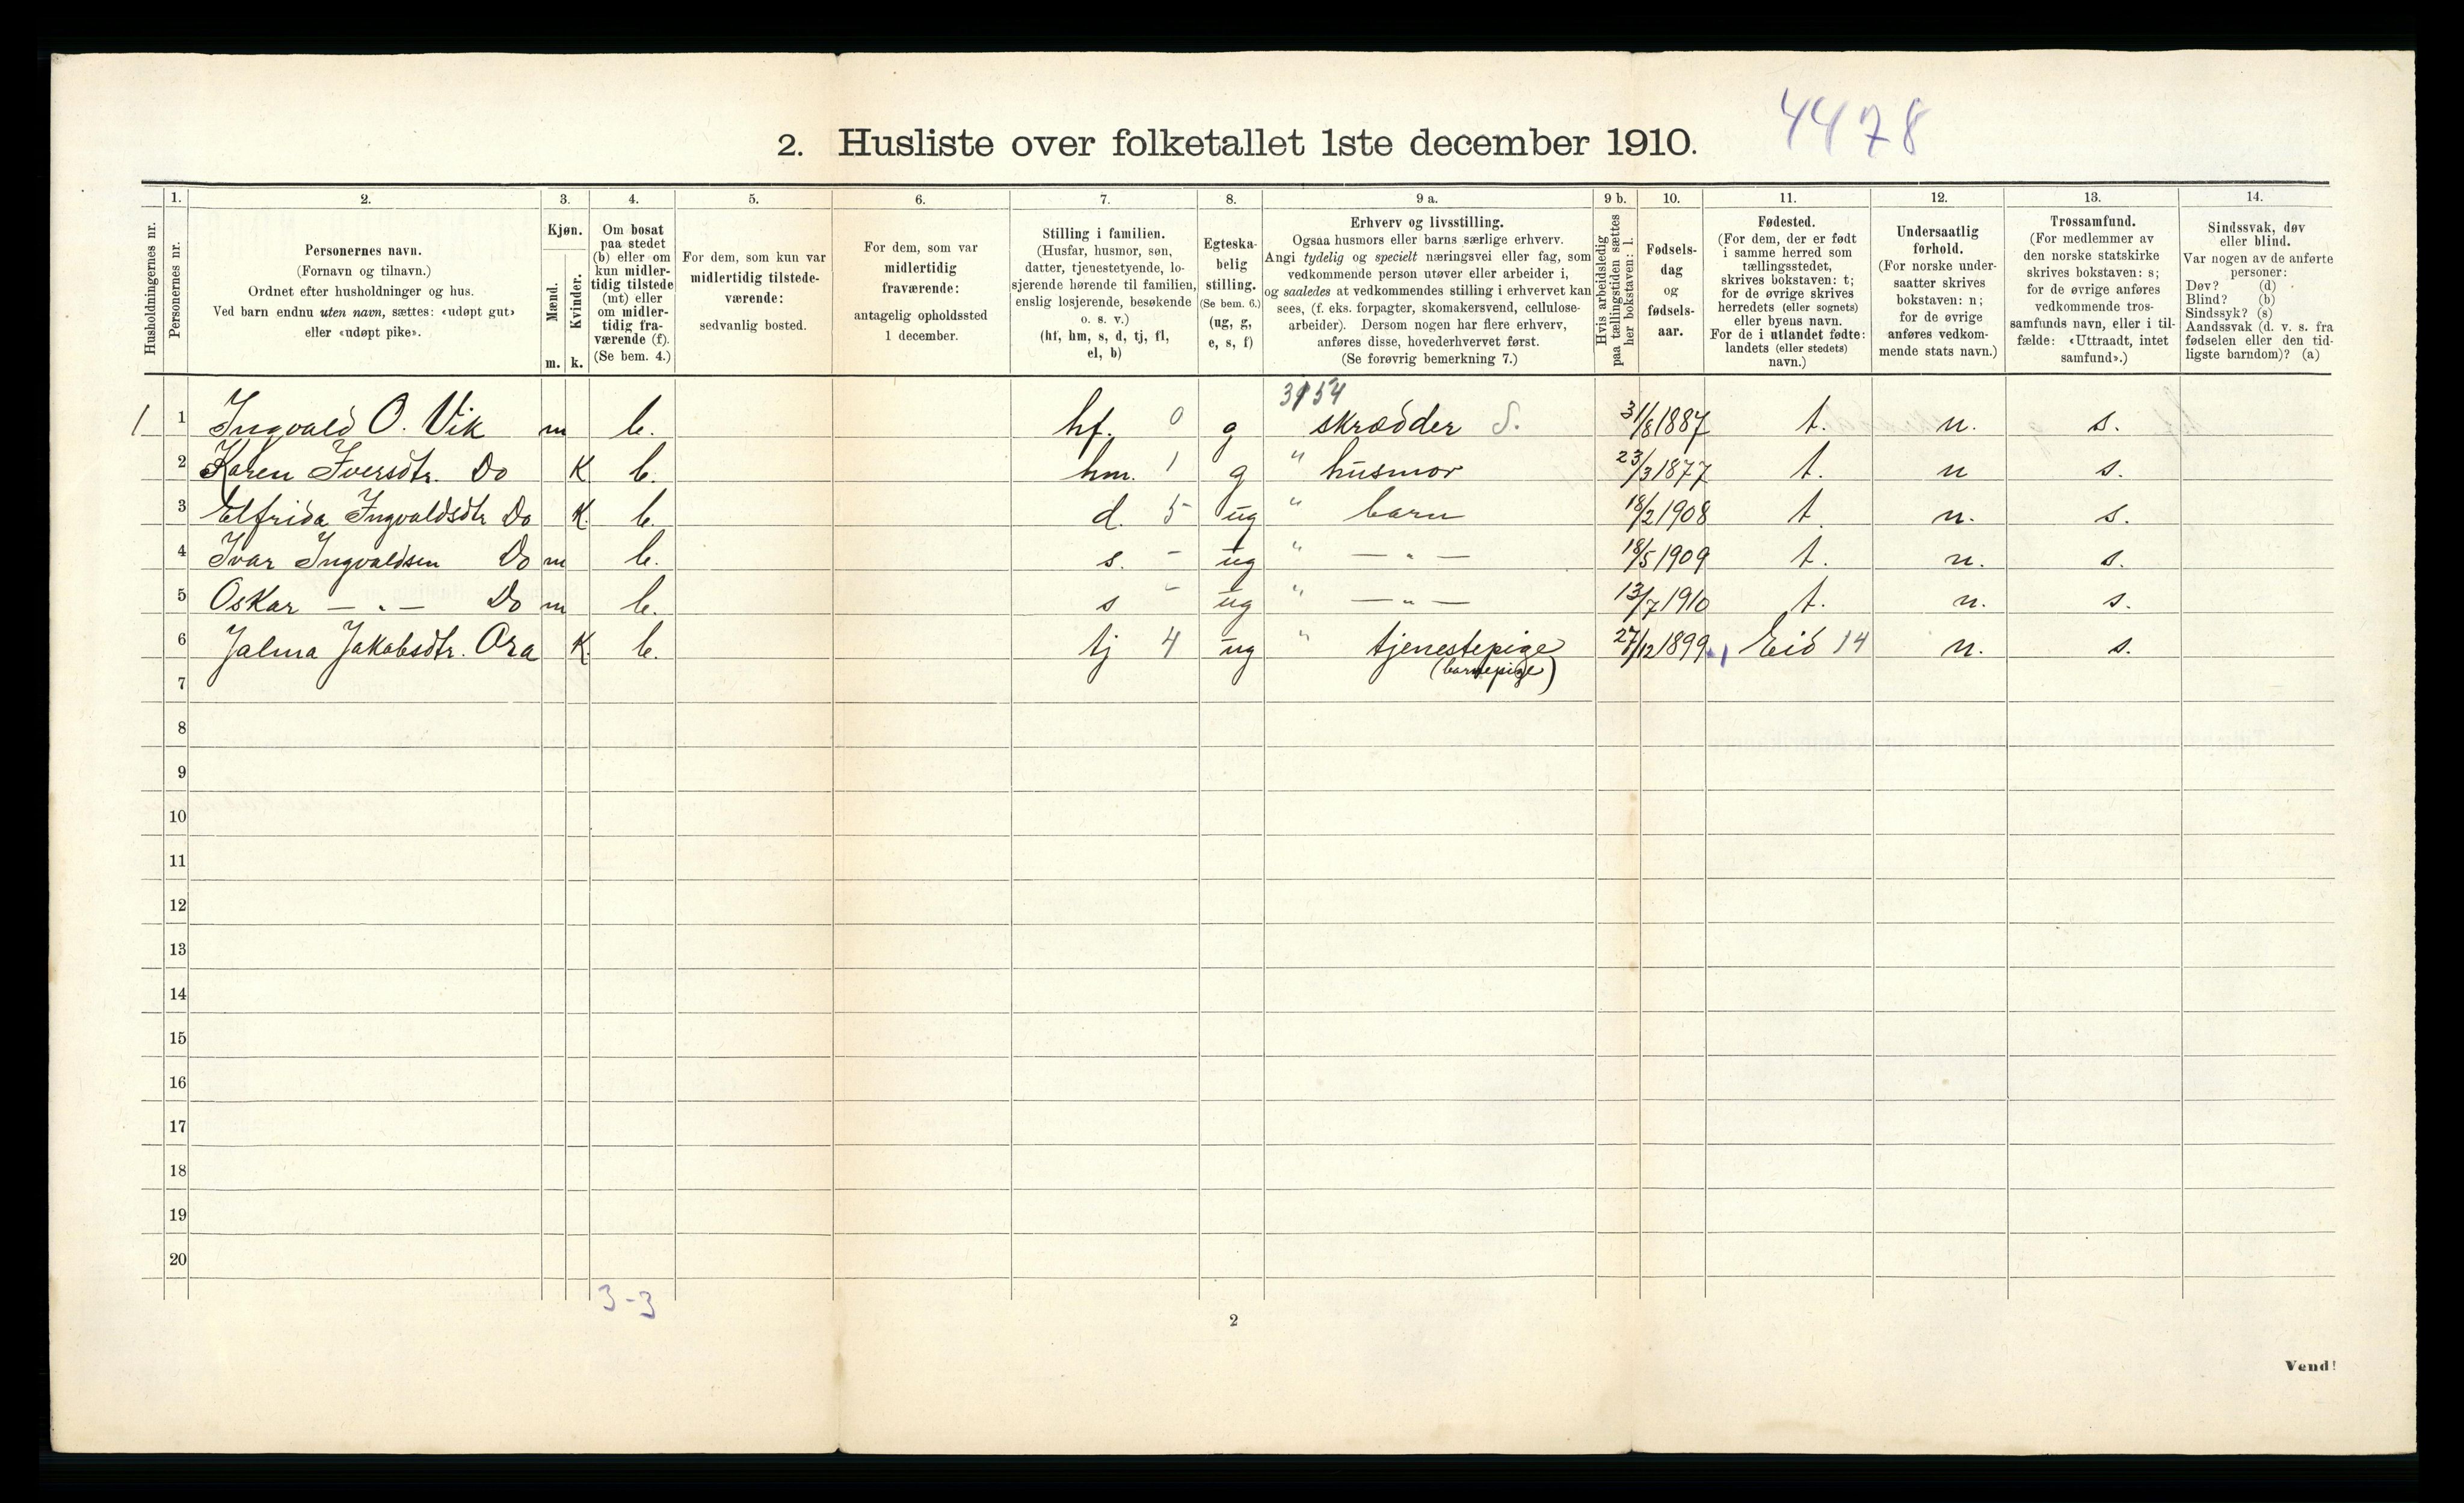 4478
2. Husliste over folketallet 1ste december 1910.
Husholdningernes nr.
1.
Personernes nr.
2.
Personernes navn.
(Fornavn og tilnavn.)
Ordnet efter husholdninger og hus.
Ved barn endnu uten navn, sættes: «udøpt gut»
eller «udøpt pike».
3.
Kjøn.
Mænd.
Kvinder.
m. k.
4.
Om bosat
paa stedet
(b) eller om
kun midler-
tidig tilstede
(mt) eller
om midler-
tidig fra-
værende (f).
(Se bem. 4.)
5.
For dem, som kun var
midlertidig tilstede-
værende:
sedvanlig bosted.
6.
For dem, som var
midlertidig
fraværende:
antagelig opholdssted
1 december.
7.
Stilling i familien.
(Husfar, husmor, søn,
datter, tjenestetyende, lo-
sjerende hørende til familien,
enslig losjerende, besøkende
o. s. v.)
(hf, hm, s, d, tj, fl,
el, b)
8.
Egteska-
belig
stilling.
(Se bem. 6.)
(ug, g,
e, s, f)
9 a.
Erhverv og livsstilling.
Ogsaa husmors eller barns særlige erhverv.
Angi tydelig og specielt næringsvei eller fag, som
vedkommende person utøver eller arbeider i,
og saaledes at vedkommendes stilling i erhvervet kan
sees, (f. eks. forpagter, skomakersvend, cellulose-
arbeider). Dersom nogen har flere erhverv,
anføres disse, hovederhvervet først.
(Se forøvrig bemerkning 7.)
9 b.
Hvis arbeidsledig
paa tællingstiden sættes
her bokstaven: l.
10.
Fødsels-
dag
og
fødsels-
aar.
11.
Fødested.
(For dem, der er født
i samme herred som
tællingsstedet,
skrives bokstaven: t;
for de øvrige skrives
herredets (eller sognets)
eller byens navn.
For de i utlandet fødte:
landets (eller stedets)
navn.)
12.
Undersaatlig
forhold.
(For norske under-
saatter skrives
bokstaven: n;
for de øvrige
anføres vedkom-
mende stats navn.)
13.
Trossamfund.
(For medlemmer av
den norske statskirke
skrives bokstaven: s;
for de øvrige anføres
vedkommende tros-
samfunds navn, eller i til-
fælde: «Uttraadt, intet
samfund».)
14.
Sindssvak, døv
eller blind.
Var nogen av de anførte
personer:
Døv? (d)
Blind? (b)
Sindssyk? (s)
Aandssvak (d. v. s. fra
fødselen eller den tid-
ligste barndom)? (a)
3154
1 1 Ingvald O. Vik m b. hf. 0 g skrædder S. 31/8 1887 t. n. s.
2 Karen Iversdtr. Do K b. hm. 1 g " husmor 23/3 1877 t. n s.
3 Elfrida Ingvaldsdtr Do K. b. d. 5 ug " barn 18/2 1908 t. n. s.
4 Ivar Ingvaldsen Do m b. s. - ug " — " — 18/5 1909 t. n. s.
5 Oskar — " — Do m b. s - ug " — " — 13/7 1910 t. n. s.
6 Jalma Jakobsdtr. Ora K. b. tj 4 ug " tjenestepige 27/12 1899 Eid 14 n. s.
(barnepige)
7
8
9
10
11
12
13
14
15
16
17
18
19
20
3-3
2
Vend!